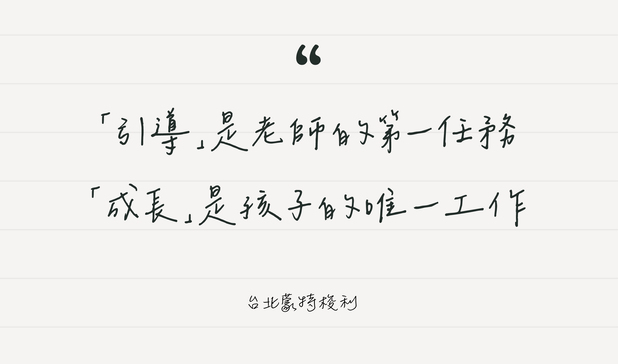 “
「引導」是老師的第一任務
「成長」是孩子的唯一工作
台北蒙特梭利